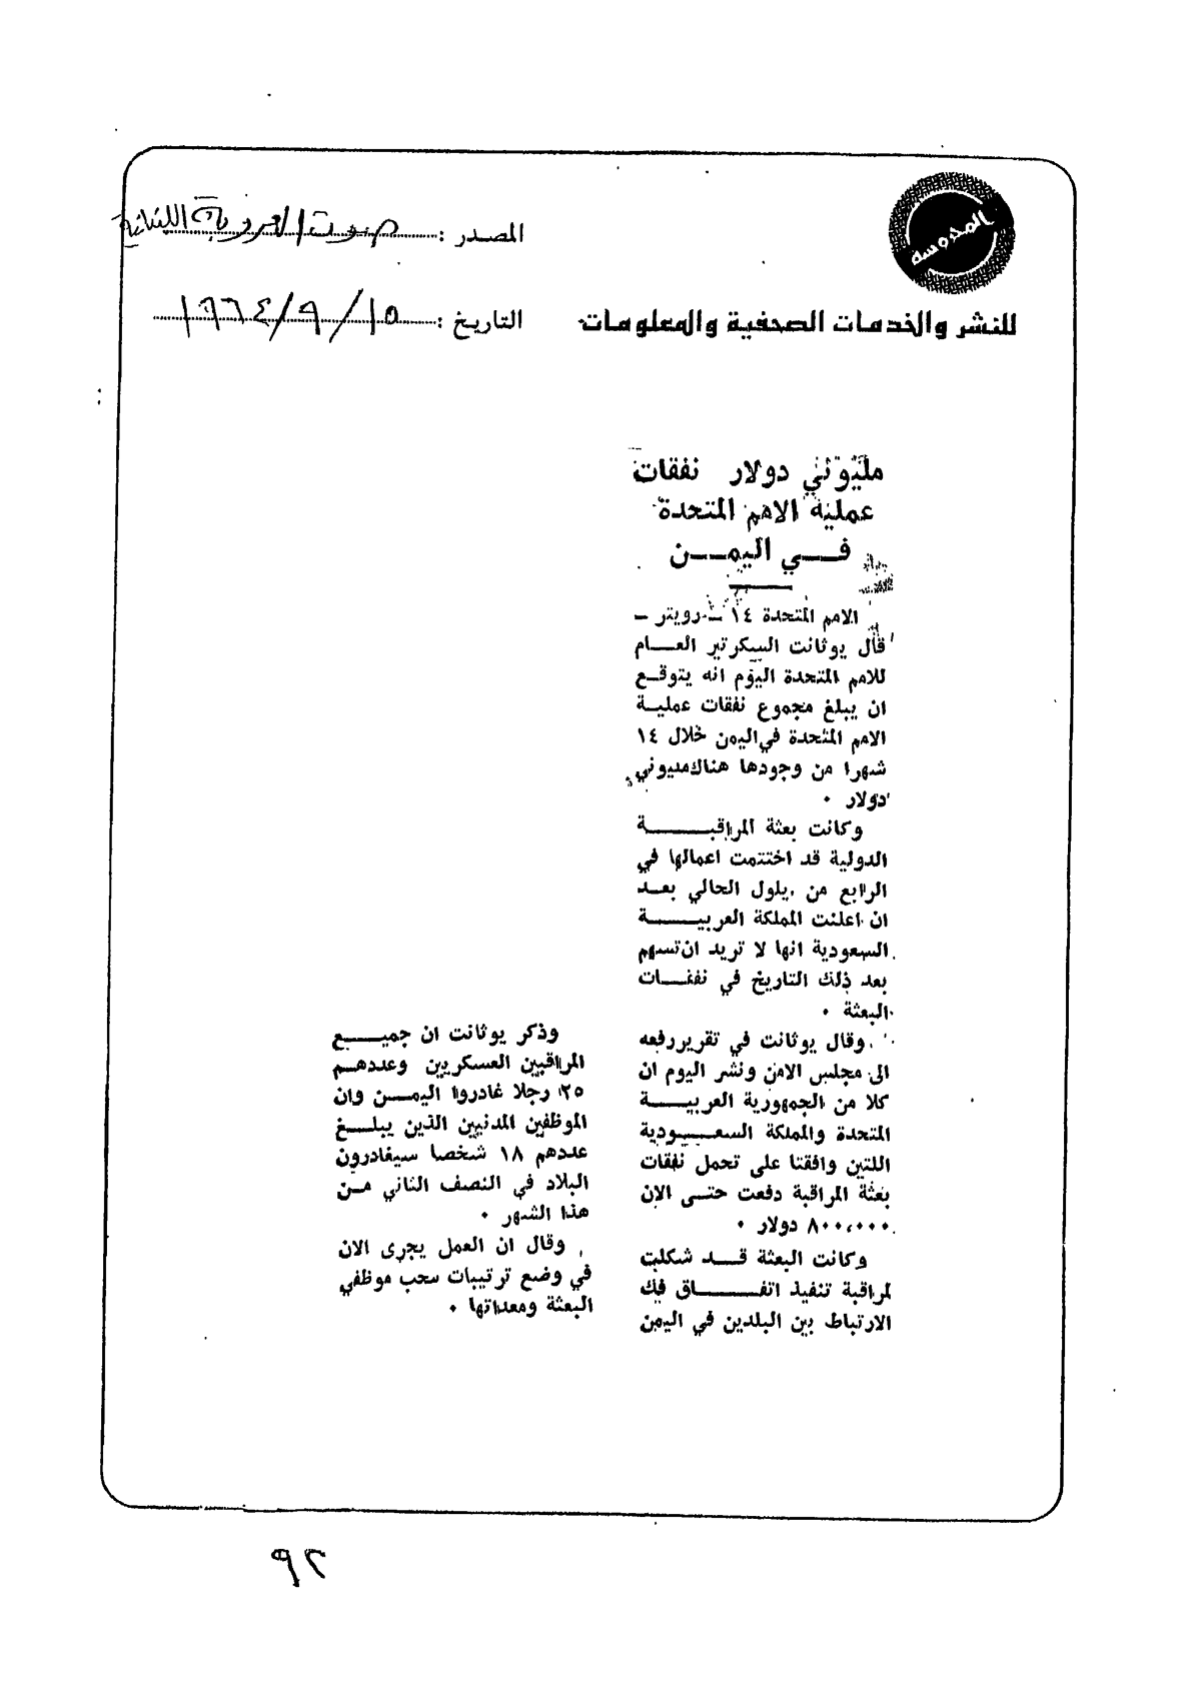 المحروسه
للنشر والخدمات الصحفية والمعلومات
المصدر : صوت العروبة اللبنانية
التاريخ : ١٥ / ٩ / ١٩٦٤
مليوني دولار نفقات
عملية الامم المتحدة
في اليمن
الامم المتحدة ١٤ – رويتر –
قال يوثانت السكرتير العام
للامم المتحدة اليوم انه يتوقع
ان يبلغ مجموع نفقات عملية
الامم المتحدة في اليمن خلال ١٤
شهرا من وجودها هناك مليوني
دولار .
وكانت بعثة المراقبة
الدولية قد اختتمت اعمالها في
الرابع من يلول الحالي بعد
ان اعلنت المملكة العربية
السعودية انها لا تريد ان تسهم
بعد ذلك التاريخ في نفقات
البعثة .
وقال يوثانت في تقرير رفعه
الى مجلس الامن ونشر اليوم ان
كلا من الجمهورية العربية
المتحدة والمملكة السعودية
اللتين وافقتا على تحمل نفقات
بعثة المراقبة دفعت حتى الان
٨٠٠،٠٠٠ دولار .
وكانت البعثة قد شكلت
لمراقبة تنفيذ اتفاق فك
الارتباط بين البلدين في اليمن
وذكر يوثانت ان جميع
المراقبين العسكريين وعددهم
٢٥ رجلا غادروا اليمن وان
الموظفين المدنيين الذين يبلغ
عددهم ١٨ شخصا سيغادرون
البلاد في النصف الثاني من
هذا الشهر .
وقال ان العمل يجرى الان
في وضع ترتيبات سحب موظفي
البعثة ومعداتها .
٩٢